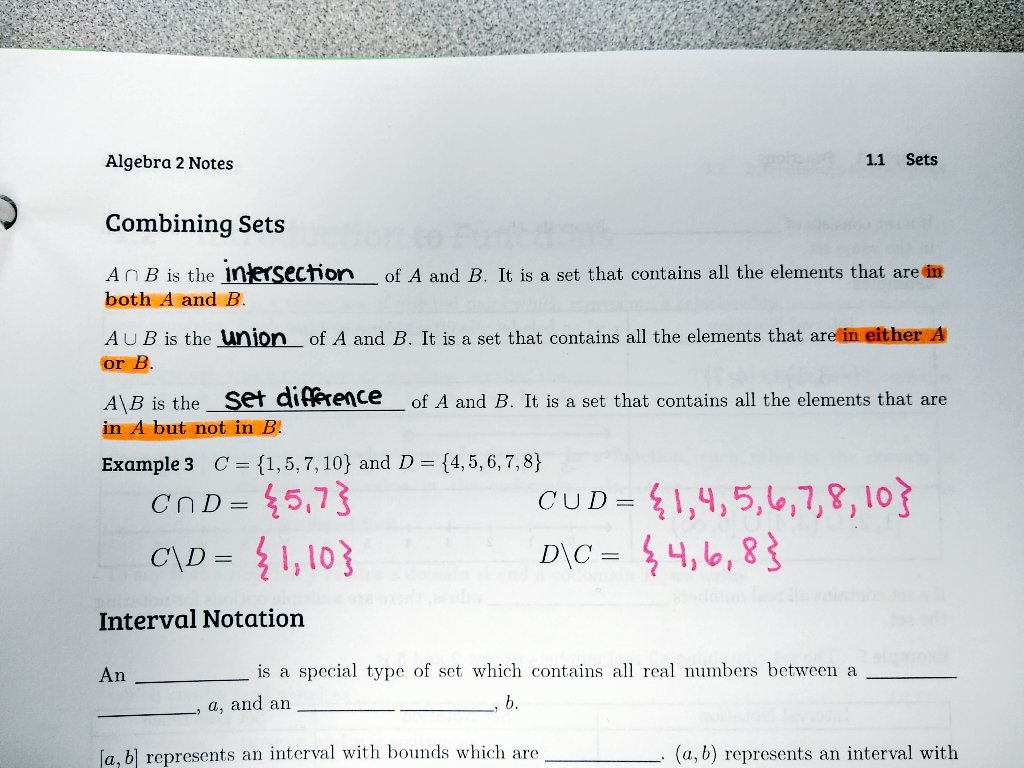 Algebra 2 Notes 1.1 Sets
Combining Sets
A ∩ B is the intersection of A and B. It is a set that contains all the elements that are in
both A and B.
A ∪ B is the union of A and B. It is a set that contains all the elements that are in either A
or B.
A\B is the set difference of A and B. It is a set that contains all the elements that are
in A but not in B.
Example 3 C = {1, 5, 7, 10} and D = {4, 5, 6, 7, 8}
C ∩ D = {5,7} C ∪ D = {1,4,5,6,7,8,10}
C\D = {1,10} D\C = {4,6,8}
Interval Notation
An ________ is a special type of set which contains all real numbers between a ________
________, a, and an ________ ________, b.
[a, b] represents an interval with bounds which are ________. (a, b) represents an interval with